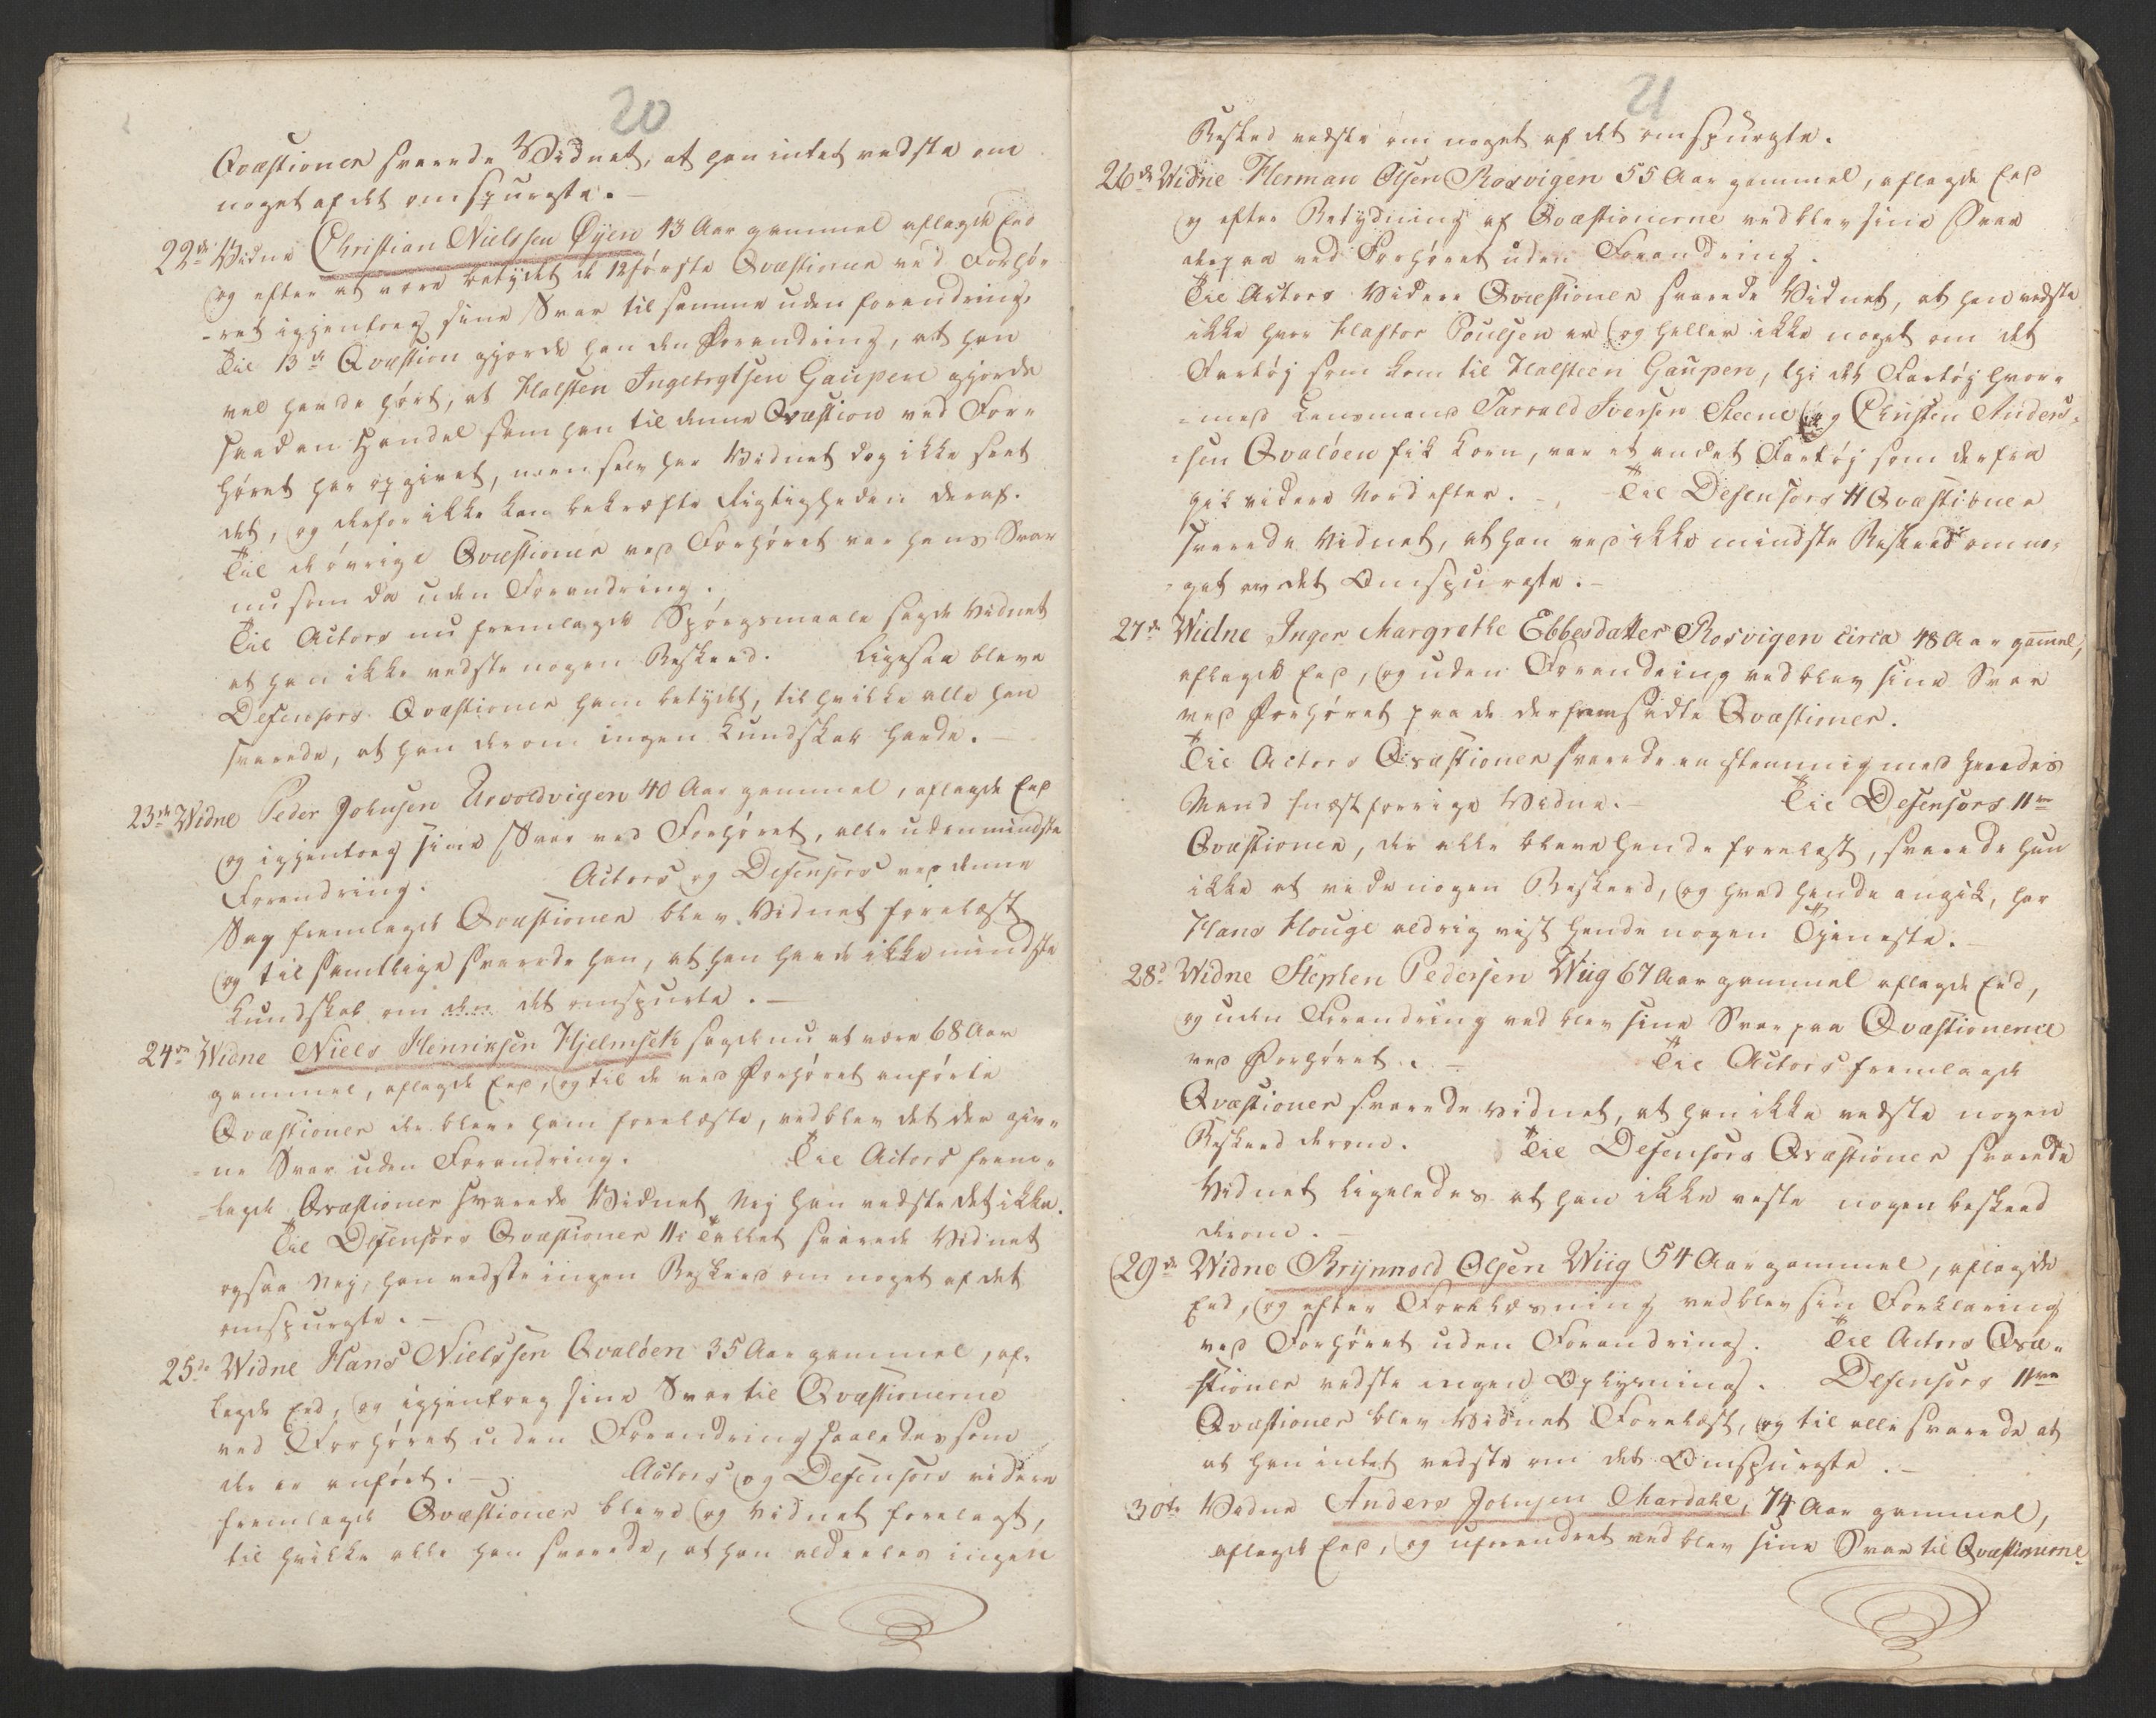 20
Qvæstioner svarede Vidnet, at han intet vedste om
noget af det omspurgte. –
22de Vidne Christian Nielssen Øyen 43 Aar gammel aflagde Eed
og efter at være betydet de 12 første Qvæstioner ved Forhø-
-ret igjentog sine Svar til samme uden forandring.
Til 13de Qvæstion gjorde han den Forandring, at han
vel havde hørt, at Halsten Ingebrgtsen Gaupen gjorde
saadan Handel som han til denne Qvæstion ved For-
høret har opgivet, men selv har Vidnet dog ikke seet
det, og derfor ikke kan bekræfte Rigtigheden deraf.
Til de øvrige Qvæstioner ved Forhøret var hans Svar
nu som da uden Forandring.
Til Actors nu fremlagde Spørgsmaale sagde Vidnet
at han ikke vedste nogen Beskeed. Ligesaa bleve
Defensors Qvæstioner ham betydet, til hvilke alle han
svarede, at han derom ingen Kundskab havde. –
23de Vidne Peder Johnsen Urvoldvigen 40 Aar gammel, aflagde Eed
og igjentog sine Svar ved Forhøret, alle uden mindste
Forandring. Actors og Defensors ved denne
Sag fremlagde Qvæstioner blev Vidnet forelæst
og til samtlige svarede han, at han havde ikke mindste
Kundskab om det omspurte. –
24de Vidne Niels Henriksen Hjelmseth sagde nu at være 68 Aar
gammel, aflagde Eed, og til de ved Forhøret anførte
Qvæstioner der bleve ham forelæste, vedblev det der giv-
-ne Svar uden Forandring. Til Actors frem-
-lagde Qvæstioner svarede Vidnet Nej han vedste det ikke.
Til Defensors Qvæstioner 11 i Tallet svarede Vidnet
ogsaa Nej, han vedste ingen Beskeed om noget af det
omspurgte. –
25de Vidne Hans Nielssen Qvaløen 35 Aar gammel, af-
lagde Eed, og igjentog sine Svar til Qvæstionerne
ved Forhøret uden Forandring saaledes som
der er anført. – Actors og Defensors videre
fremlagde Qvæstioner bleve og Vidnet forelæst,
til hvilke alle han svarede, at han aldeeles ingen
21
Besked vedste om noget af det omspurgte.
26de Vidne Herman Olsen Rosvigen 55 Aar gammel, aflagde Eed
og efter Betydning af Qvæstionerne vedblev sine Svar
derpaa ved Forhøret uden Forandring.
Til Actors Videre Qvæstioner svarede Vidnet, at han vedste
ikke hvor Hastor Poulsen er og heller ikke noget om det
Fartøj som kom til Halsteen Gaupen, thi det Fartøj hvor-
-med Lensmand Tarrald Iversen Steene og Christen Anders-
-sen Qvaløen fik Korn, var et andet Fartøj som derfra
gik videre Nord efter. – Til Defensors 11 Qvæstioner
svarede Vidnet, at han ved ikke mindste Beskeed om no-
-get av det Omspurgte. –
27de Vidne Inger Margrethe Ebbesdatter Rosvigen circa 48 Aar gammel,
aflagde Eed, og uden Forandring vedblev sine Svar
ved Forhøret paa de der fremsadte Qvæstioner.
Til Actors Qvæstioner svarede eenstemmig med hendes
Mand næstforrige Vidne. – Til Defensors 11ve
Qvæstioner, der alle bleve hende forelæst, svarede hun
ikke at vide nogen Beskeed, og hvad hende angik, har
Hans Houge aldrig vist hende nogen Tjeneste. –
28de Vidne Stephen Pedersen Wiig 67 Aar gammel aflagde Eed,
og uden Forandring vedblev sine Svar paa Qvæstionerne
ved Forhøret. – Til Actors fremlagde
Qvæstioner svarede vidnet, at han ikke vedste nogen
Beskeed derom. Til Defensors Qvæstioner svarede
Vidnet ligeledes at han ikke veste nogen beskeed
derom. –
29de Vidne Brijnnold Olsen Wiig 54 Aar gammel, aflagde
Eed, og efter Forelæsning vedblev sin Forklaring
ved Forhøret uden Forandring. Til Actors Qvæ-
stioner vedste ingen Oplysning. Defensors 11ve
Qvæstioner blev Vidnet Forelæst, og til alle svarede at
at han intet vedste om det Omspurgte. –
30te Vidne Anders Johnsen Mardahl, 74 Aar gammel,
aflagde Eed, og uforandret vedblev sine Svar til Qvæstionerne